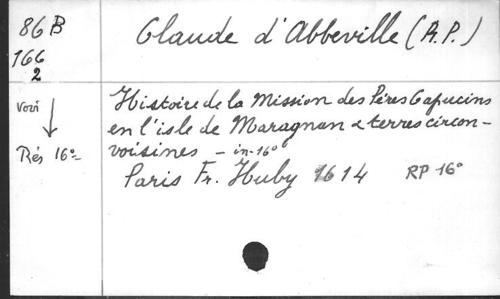 86B
166
2
Claude d'Abbeville (R.P.)
voir
Rés 16º
Histoire de la Mission des Pères Capucins
en l'isle de Maragnan & terres circon-
voisines - in-16º
Paris Fr. Huby 1614 RP 16º